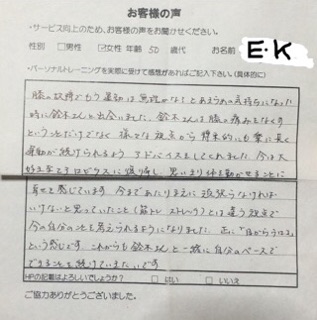 お客様の声
・サービス向上のため、お客様の声をお聞かせください。
性別 □男性 ☑女性 年齢 50 歳代 お名前 E・K
・パーソナルトレーニングを実際に受けて感想があればご記入下さい。(具体的に)
膝の故障でもう運動は無理かな!とあきらめの気持ちになった
時に鈴木さんと出会いました。鈴木さんは膝の痛みをなくす
ということだけでなく様々な視点から将来的にも楽に長く
運動が続けられるようアドバイスをしてくれました。今は大
好きなエアロビクスに復帰し、思いきり体を動かせることに
幸せと感じています。今まであたりまえに頑張らなければ
いけないと思っていたこと(筋トレ ストレッチ)とは違う視点で
今の自分のことを考えられるようになりました。正に"目からうろこ"
という感じです。これからも鈴木さんと一緒に自分のペースで
できることを続けていきたいです
HPの記載はよろしいでしょうか? □ はい □ いいえ
ご協力ありがとうございました。